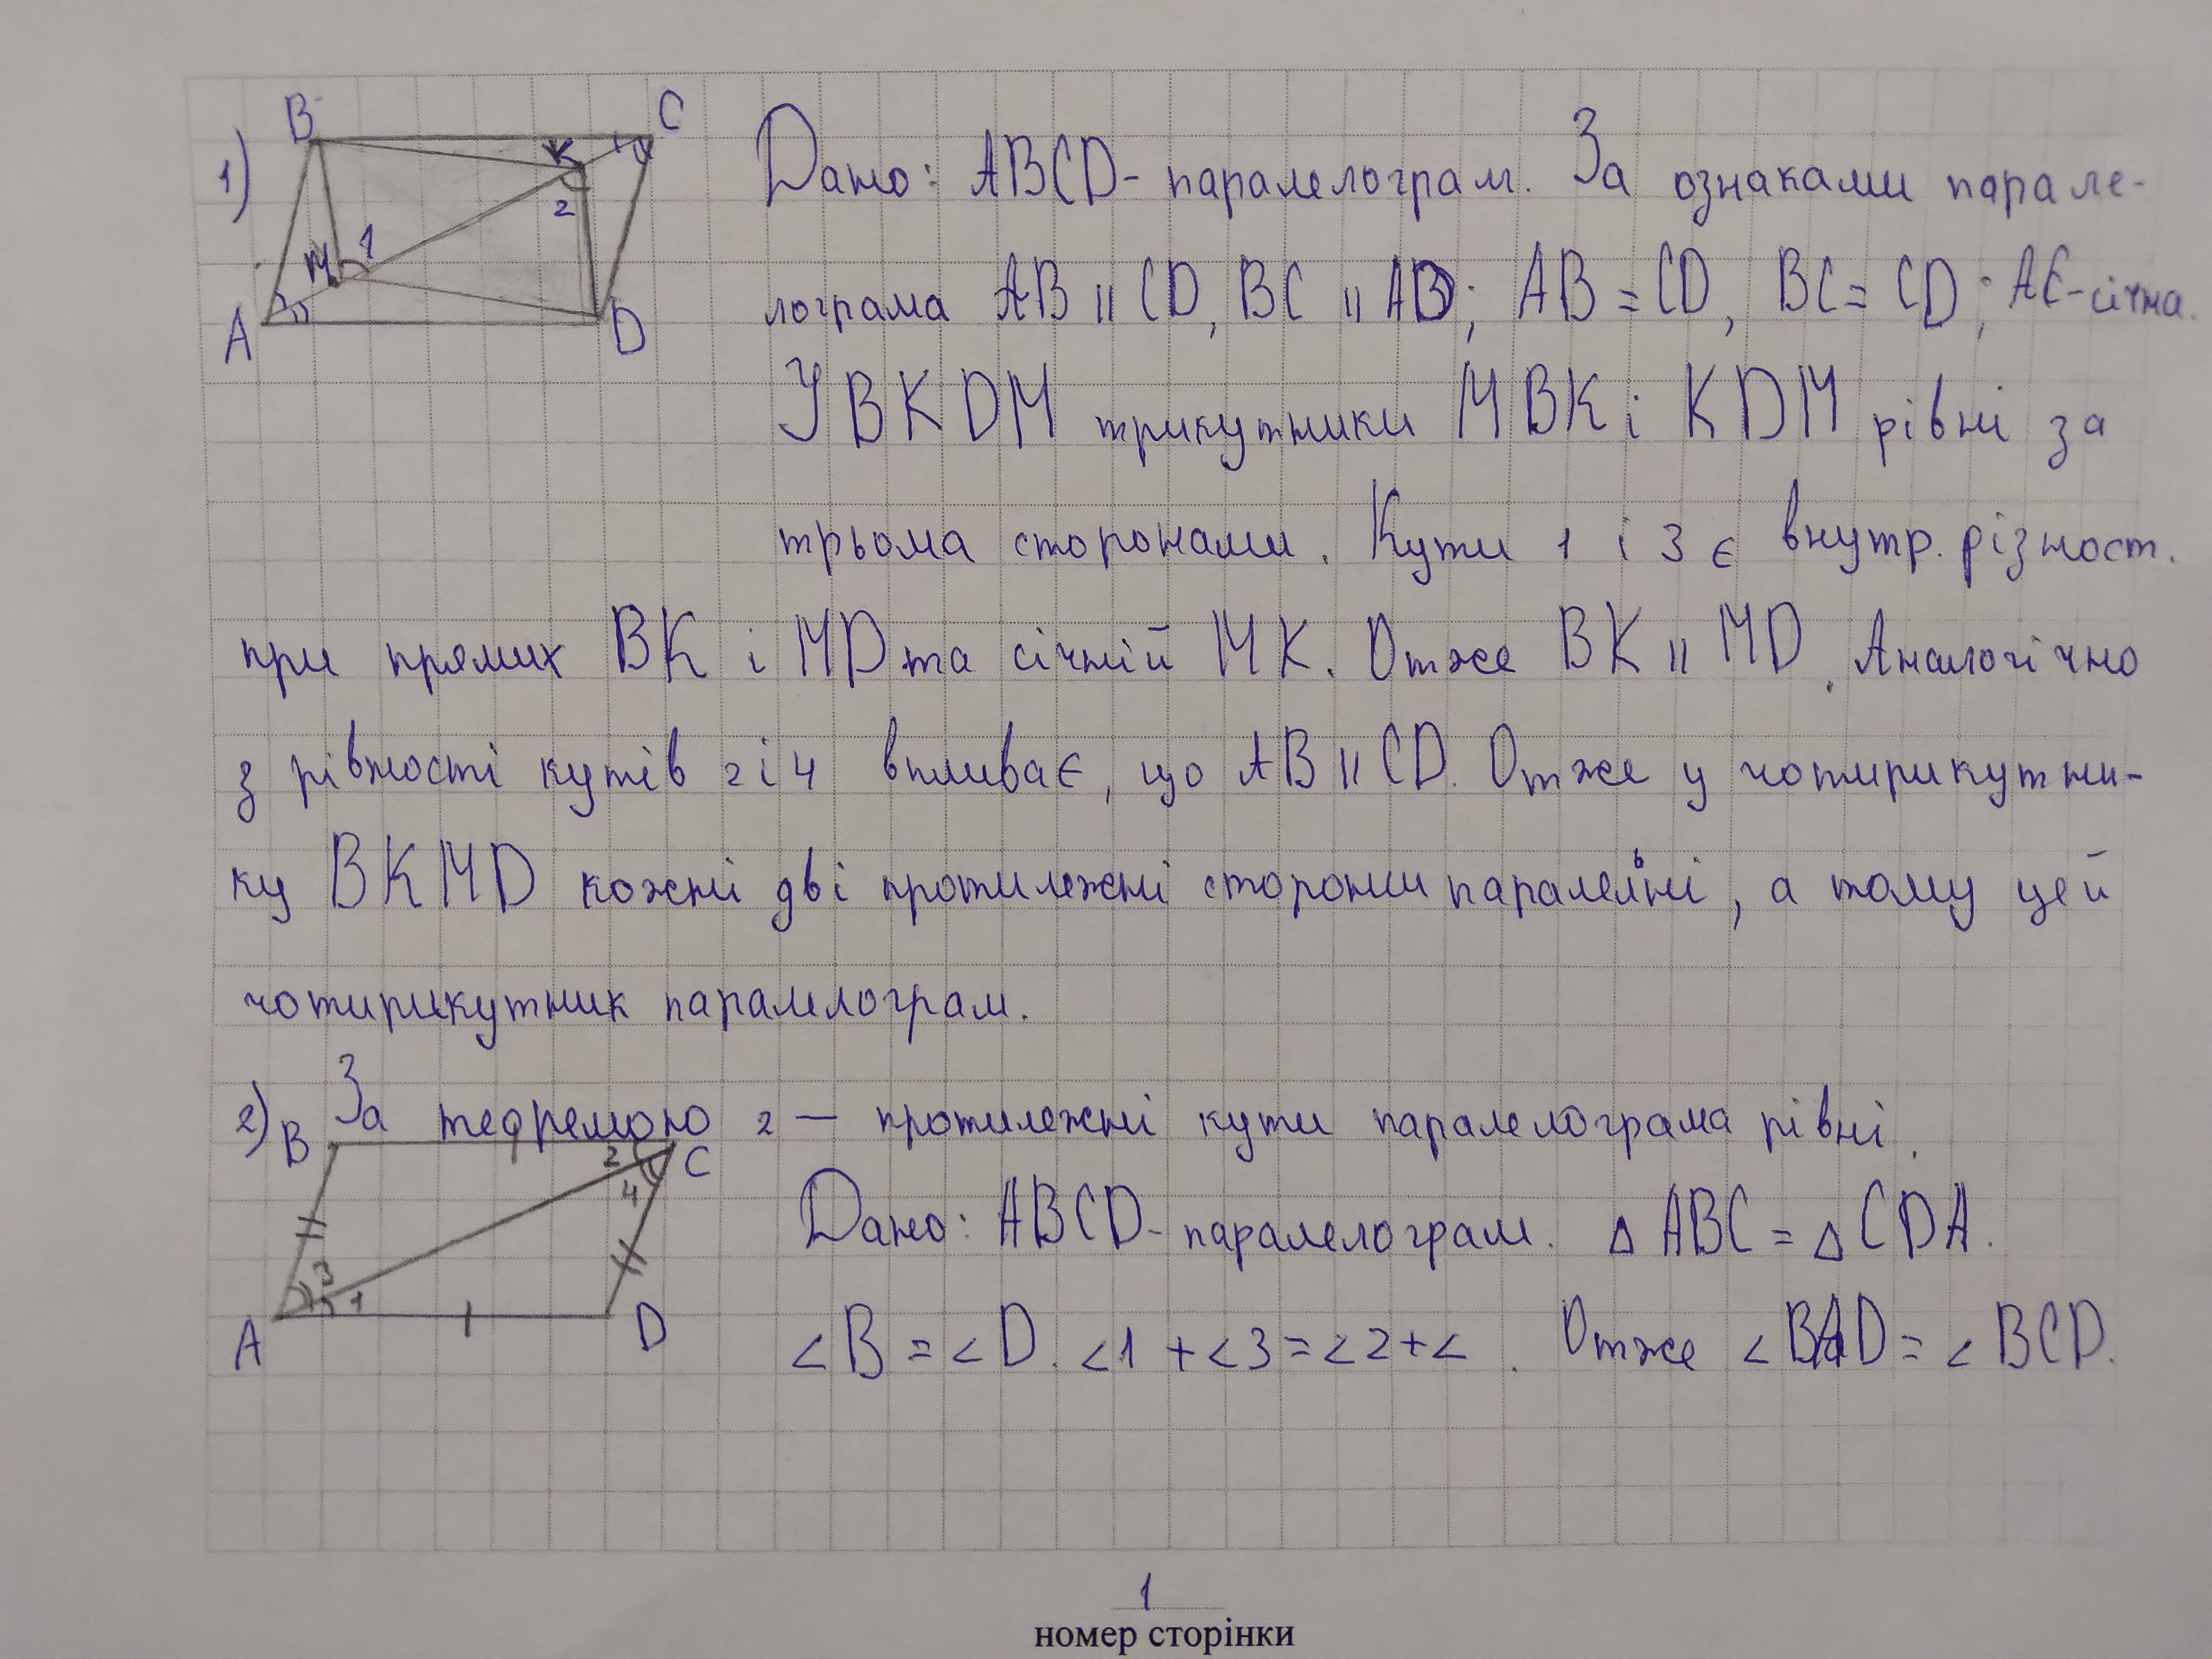 1)
B
C
K
2
M
1
A
D
Дано: ABCD - паралелограм. За ознаками парале-
лограма AB || CD, BC || AD; AB = CD, BC = CD; AC - січна.
У BKDM трикутники MBK і KDM рівні за
трьома сторонами. Кути 1 і 3 є внутр. різност.
при прямих BK і MD та січній MK. Отже BK || MD. Аналогічно
з рівності кутів 2 і 4 впливає, що AB || CD. Отже у чотирикутни-
ку BKMD кожні дві протилежні сторони паралельні, а тому цей
чотирикутник паралелограм.
2) За теоремою 2 — протилежні кути паралелограма рівні.
B
2
C
4
3
1
A
D
Дано: ABCD - паралелограм. △ ABC = △ CDA.
∠B = ∠D. ∠1 + ∠3 = ∠2 + ∠ . Отже ∠BAD = ∠BCD.
1
номер сторінки